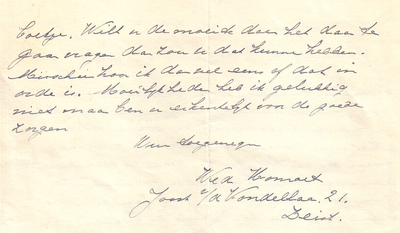 boekje. Wilt u de moeite doen het daar te
gaan vragen dan zou u dat kunnen hebben.
Misschien hoor ik dan wel eens of dat in
orde is. Moeilijkheden heb ik gelukkig
niet maar ben u erkentelijk voor de goede
zorgen
Uw
Wed.
Joost v/d Vondellaan 21.
Zeist.